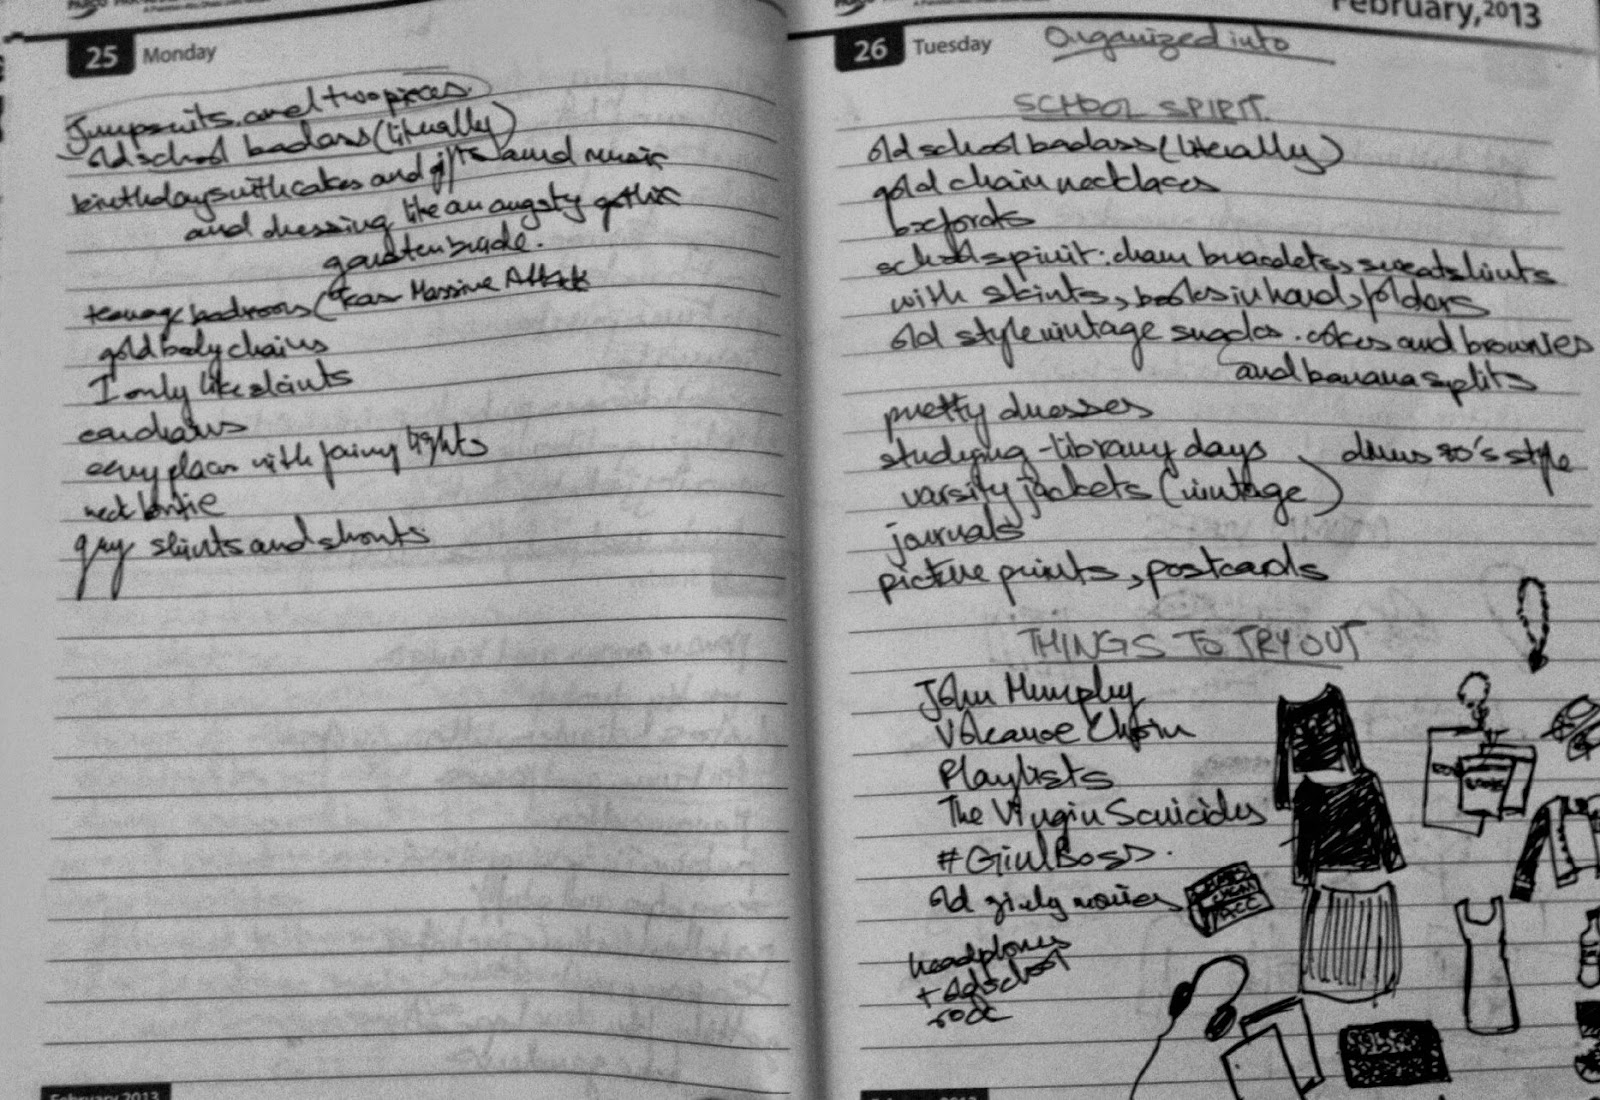 25 Monday
Jumpsuits and two pieces.
old school badass (literally)
birthdays with cakes and gifts and music
and dressing like an angsty gothic
goustenbride.
teenage bedrooms (Tear Massive Attack
gold body chains
I only like skirts
earchains
every place with fairy lights
neck bowtie
grey skirts and shorts
February 2013
February, 2013
26 Tuesday Organized into
SCHOOL SPIRIT.
old school badass (literally)
gold chain necklaces
oxfords
school spirit: charm bracelets, sweatshirts
with skirts, books in hand, folders
old style vintage snacks. cokes and brownies
and banana splits
pretty dresses
studying - library days dress 70's style
varsity jackets (vintage)
journals
picture prints, postcards
THINGS TO TRY OUT
John Murphy
Volcanoe Choir
Playlists
The Virgin Scuicides
#GirlBoss.
old girly movies
CHEM
ACC
headphones
+ old school
rock